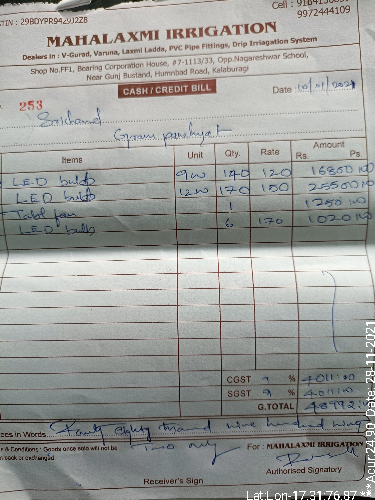 TIN : 29BDYPR9429J2Z8
9972444109
MAHALAXMI IRRIGATION
Dealers in : V-Gurad, Varuna, Laxmi Ladda, PVC Pipe Fittings, Drip Irrigation System
Shop No.FF1, Bearing Corporation House, #7-1113/33, Opp.Nagareshwar School,
Near Gunj Bustand, Humnbad Road, Kalaburagi
CASH / CREDIT BILL
253
Date
Gram panchayat
Items Unit Qty. Rate Amount
Rs. Ps.
LED bulb 9w 140 120 16800 00
LED bulb 12w 170 150 25500 00
Table fan 1 1250 00
LED bulb 6 170 1020 00
CGST 9 % 4011.00
SGST 9 % 4011.00
G.TOTAL
ees in Words Forty eighty thousand nine hundred
two only
s & Conditions : Goods once sold will not be
n back or exchanged
For : MAHALAXMI IRRIGATION
Authorised Signatory
Receiver's Sign
Lat:Lon-17.31,76.87 ***Acur:24.90 Date: 28-11-2021